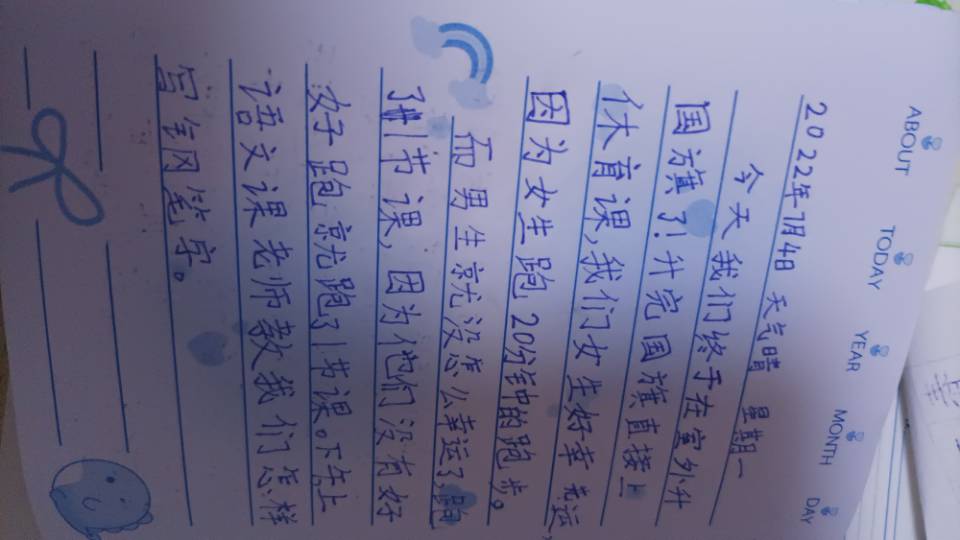 ABOUT TODAY YEAR MONTH DAY
2022年7月4日 天气晴 星期一
今天我们终于在室外升
国旗了!升完国旗直接上
体育课,我们女生好幸运,
因为女生跑20分钟的跑步。
而男生就没怎么幸运了,跑
了1节课,因为他们没有好
好跑就跑了1节课。下午上
语文课老师教我们怎样
写钢笔字。